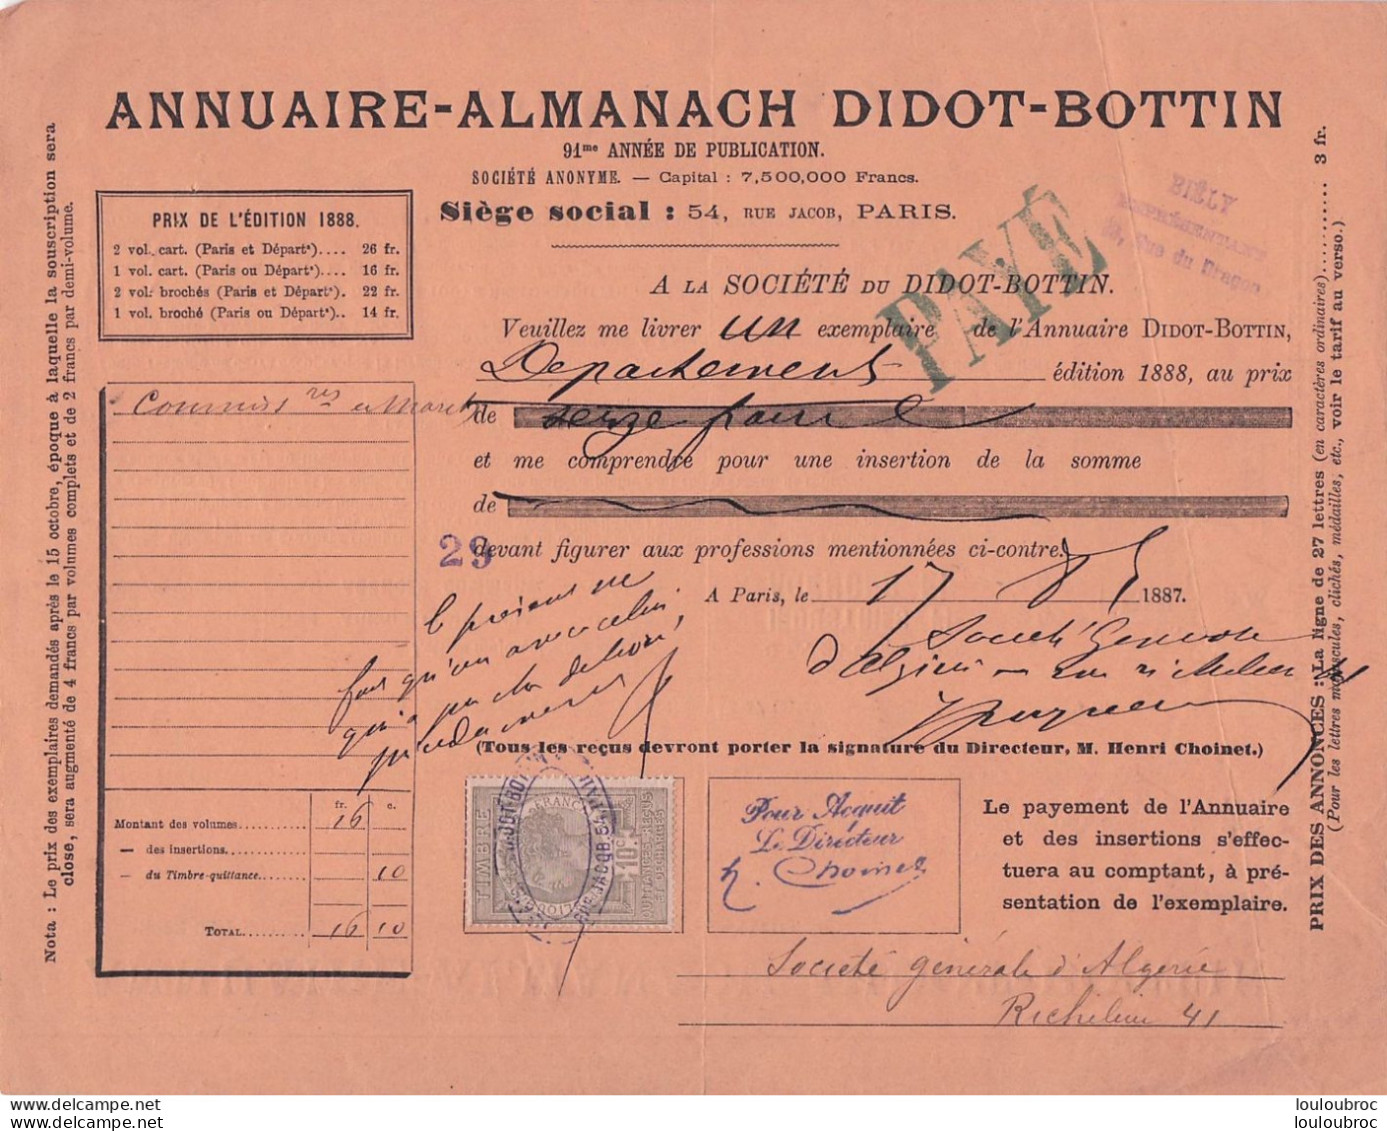 ANNUAIRE-ALMANACH DIDOT-BOTTIN
91me ANNÉE DE PUBLICATION.
SOCIÉTÉ ANONYME. — Capital : 7,500,000 Francs.
Siège social : 54, RUE JACOB, PARIS.
BIÉLY
REPRÉSENTANT
Rue du Dragon
PAYÉ
PRIX DE L'ÉDITION 1888.
2 vol. cart. (Paris et Départts).... 26 fr.
1 vol. cart. (Paris ou Départts).... 16 fr.
2 vol. brochés (Paris et Départts). 22 fr.
1 vol. broché (Paris ou Départts).. 14 fr.
A LA SOCIÉTÉ DU DIDOT-BOTTIN.
Veuillez me livrer un exemplaire de l'Annuaire DIDOT-BOTTIN,
Departements édition 1888, au prix
de seize francs
et me comprendre pour une insertion de la somme
de
29
devant figurer aux professions mentionnées ci-contre.
A Paris, le 17 1887.
Société Generale
d'Algérie — Rue Richelieu 41
Commiss res en March
(Tous les reçus devront porter la signature du Directeur, M. Henri Choinet.)
fr. c.
Montant des volumes... 16
— des insertions...
— du Timbre-quittance... 10
TOTAL... 16 10
TIMBRE
FRANC
10c
QUITTANCES REÇUS
ET DÉCHARGES
DIDOT-BOTTIN
RUE JACOB. 54
Pour Acquit
Le Directeur
H. Choinet
Le payement de l'Annuaire
et des insertions s'effec-
tuera au comptant, à pré-
sentation de l'exemplaire.
Société générale d'Algérie
Richelieu 41
Nota : Le prix des exemplaires demandés après le 15 octobre, époque à laquelle la souscription sera
close, sera augmenté de 4 francs par volumes complets et de 2 francs par demi-volume.
PRIX DES ANNONCES : La ligne de 27 lettres (en caractères ordinaires)........... 3 fr.
(Pour les lettres majuscules, clichés, médailles, etc., voir le tarif au verso.)
www.delcampe.net
www.delcampe.net
louloubroc
louloubroc